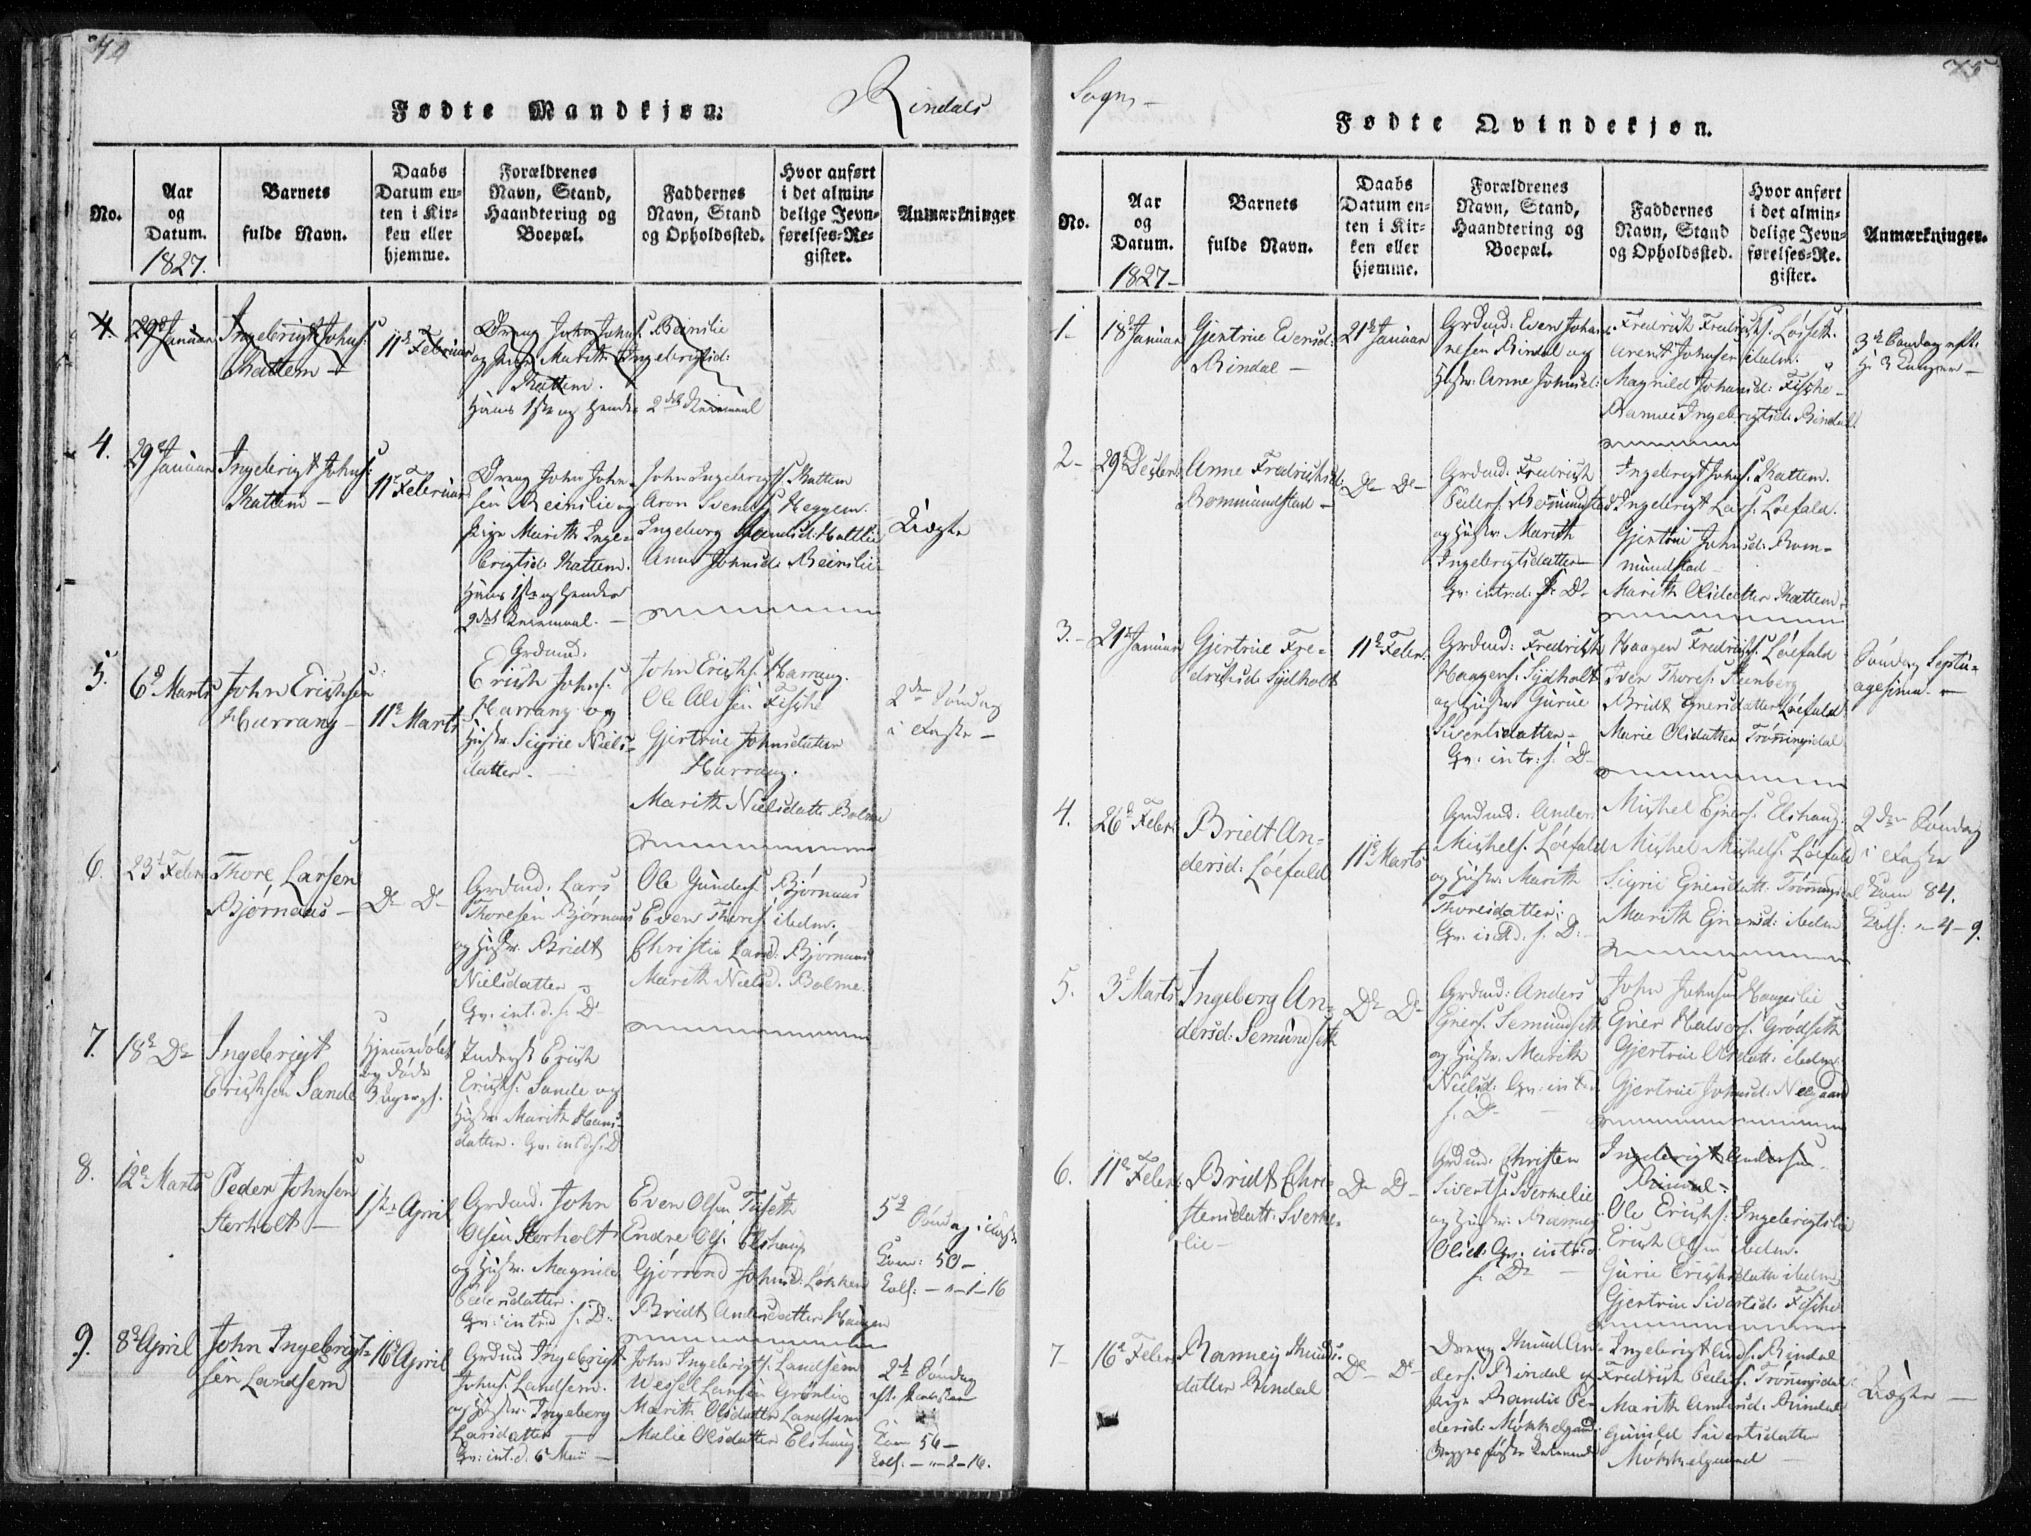 74
Fødte Mandkjøn.
Rindals
No.
Aar og Datum.
1827.
Barnets fulde Navn.
Daabs Datum enten i Kirken eller hjemme.
Forældrenes Navn, Stand, Haandtering og Boepæl.
Faddernes Navn, Stand og Opholdssted.
Hvor anført i det almindelige Jevnførelses-Register.
Anmærkninger
4.
29d Januar
Ingebrigt Johns:
Kattem
11d Februar
Dreng John Johns. Reinslie
og Pige Marith Ingebrigtsd:
Kattem.
Hans 1ste og Hendes 2det Leiermaal
4.
29d Januar
Ingebrigt Johns:
Kattem
11d Februar
Dreng John John-
sen Reinslie og
Pige Marith Inge-
brigtsd: Kattem.
Hans 1ste og Hendes
2det Leiermaal.
John Ingebrigts. Kattem
Aron Svends. Heggem.
Ingeborg
Anne Johnsd: Reinslie
Uægte
5.
6d Marts
John Erichsen
Harrang
11d Marts
Grdmd:
Erich Johns.
Harrang og
Hustr. Sigrie Niels-
datter.
John Erichs. Harrang.
Ole Olsen Fiske
Gjertrue Johnsdatter
Harrang.
Marith Nielsdatter Bolme
2den Søndag
i Faste
6.
23d Febr:
Thore Larsen
Bjørnaas
Do Do
Grdmd: Lars
Thoresen Bjørnaas
og Hustr. Bridt
Nielsdatter
Gv: intr. d. s. D.
Ole Gunders. Bjørnaas
Even Thores. ibdm.
Christie Larsd: Bjørnaas
Marith Nielsd. Bolme.
7.
18d Do
Ingebrigt
Erichsen Sande
Hjemmedøbt
og døde
Inderst Erich
Erichs. Sande og
Hustr. Marith Hans-
datter. Gv. intr. d. s. D.
8.
12d Marts
Peder Johnsen
Storholt
1ste April
Grdmd. John
Olsen Storholt
og Hustr. Magnild
Pedersdatter.
Gv: intr. d. s. D.
Even Olsen Fuseth
Endre Ols. Elshaug
Gjørond Johnsd: Løkken
Bridt Andersdatter Haugen
5d Søndag i Faste
Com: 50
1-16
9.
8d April
John Ingebrigt-
sen Landsem
16d April
Grdmd Ingebrigt
Johns. Landsem.
og Hustr. Ingeborg
Larsdatter
Gv: int. d. 6 Mai
John Ingebrigts. Landsem
Wessel Larsen Grønlie
Marith Olsdatter Landsem
Malie Olsdatter Elshaug
2d Søndag
Com 56
2-16.
75
Sogn
Fødte Qvindekjøn.
No.
Aar og Datum.
1827
Barnets fulde Navn.
Daabs Datum enten i Kirken eller hjemme.
Forældrenes Navn, Stand, Haandtering og Boepæl.
Faddernes Navn, Stand og Opholdssted.
Hvor anført i det almindelige Jevnførelses-Re-gister.
Anmærkninger.
1
18d Januar
Gjertrue Evensd:
Rindal
21d Januar
Grdmd: Even Johan-
nesen Rindal og
Hustr: Anne Johnsd:
Fredrich Fredrichs. Løfseth.
Arent Johnsen ibdm.
Magnild Johnsd: Fiske
Rannei Ingebrigtsd: Rindal
3d Søndag eft.
H: 3 Konger
2
29d Decbr:
Anne Fredrichsd:
Rommundstad
Do Do
Grdmd: Fredrich
Peders. Rommundstad
og Hustr. Marith
Ingebrigtsdatter
Gv: intr: d. s. D.
Ingebrigt Johns. Kattem.
Ingebrigt Lars. Løefald.
Gjertrue Johnsd: Rom-
mundstad
Marith Olsdatter Kattem
3.
21d Januar
Gjertrue Fre-
drichsd: Sydholt
11d Febr.
Grdmd: Fredrich
Haagens. Sydholt
og Hustr. Gurue
Sivertsdatter
Gv: intr: s. D.
Haagen Fredrichs. Løefald
Iver Thores. Stenberg
Bridt Einersdatter Løefald
Marie Olsdatter Trønningsdal
Søndag Septu-
agesima.
4.
26d Febr:
Bridt An-
dersd: Løefald
11d Marts
Grdmd: Anders
Michels. Løefald
og Hustr. Marith
Thoresdatter
Gv. int. d. s. D.
Michel Einers. Elshaug.
Michel Michels. Løefald
Sigrie Einersdatt: Trønningsdal
Marith Einersd: ibdm
2den Søndag
i Faste
Com 84.
4-9.
5.
3d Marts
Ingeborg An-
dersd: Semundseth
Do Do
Grdmd: Anders
Einers. Semundseth
og Hustr. Marith
Nielsd. Gv: intr.
s. D.
John Johnsen Haugslie
Einer Halvors. Grødseth
Gjertrue Olsdatt: ibdm.
Gjertrue Johnsd: Nergaard
6.
11d Febr:
Bridt Chri-
stensdatt: Sverke-
lie
Do Do
Grdmd: Christen
Siverts. Sverkelie
og Hustr: Rannei
Olsd: Gv. intr. d.
s. D.
Ingebrigt Andersen
Rindal.
Ole Erichs. Ingebrigtslie
Erich Olsen ibdm.
Gurie Erichsdatt: ibdm
Gjertrue Sivertsd: Fiske
7
16d Febr:
Rannei Knuds-
datter Rindal
Do Do
Dreng Knud An-
ders. Rindal og
Pige Randie Pe-
dersd: Møkkelgaard
Begges første Leiermaal
Ingebrigt Ands. Rindal
Fredrich Peders. Trønningsdal
Marith Andersd: Rindal
Gunild Sivertsdatter
Møkkelgaard
Uægte